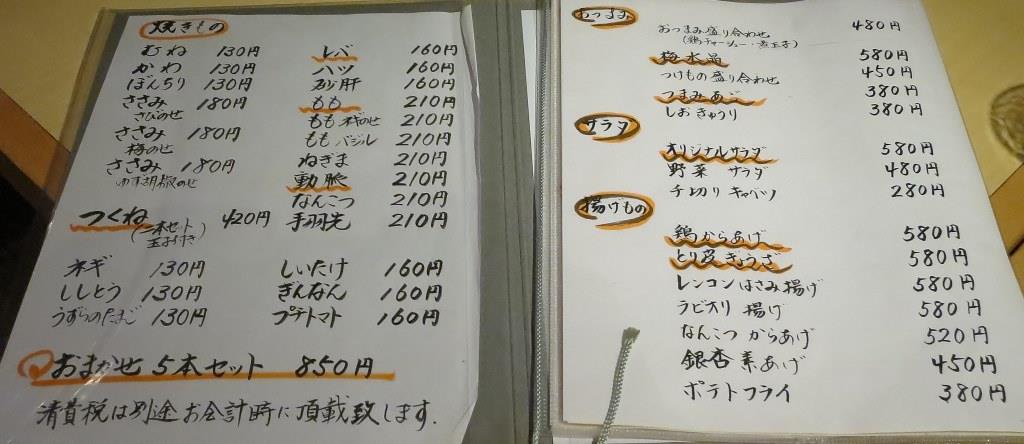 焼きもの
むね 130円
かわ 130円
ぼんちり 130円
ささみ 180円
さびのせ
ささみ 180円
梅のせ
ささみ 180円
ゆず胡椒のせ
つくね 420円
(二本セット
玉子付き)
ネギ 130円
ししとう 130円
うずらのたまご 130円
レバ 160円
ハツ 160円
砂肝 160円
もも 210円
もも ネギのせ 210円
もも バジル 210円
ねぎま 210円
動脈 210円
なんこつ 210円
手羽先 210円
しいたけ 160円
ぎんなん 160円
プチトマト 160円
おまかせ 5本セット 850円
消費税は別途お会計時に頂載致します.
おつまみ
おつまみ盛り合わせ 480円
(鶏チャーシュー・煮玉子)
梅水晶 580円
つけもの盛り合わせ 450円
つまみあげ 380円
しおきゅうり 380円
サラダ
オリジナルサラダ 580円
野菜サラダ 480円
千切りキャベツ 280円
揚げもの
鶏からあげ 580円
とり皮ぎょうざ 580円
レンコンはさみ揚げ 580円
ラビオリ揚げ 580円
なんこつからあげ 520円
銀杏素あげ 450円
ポテトフライ 380円